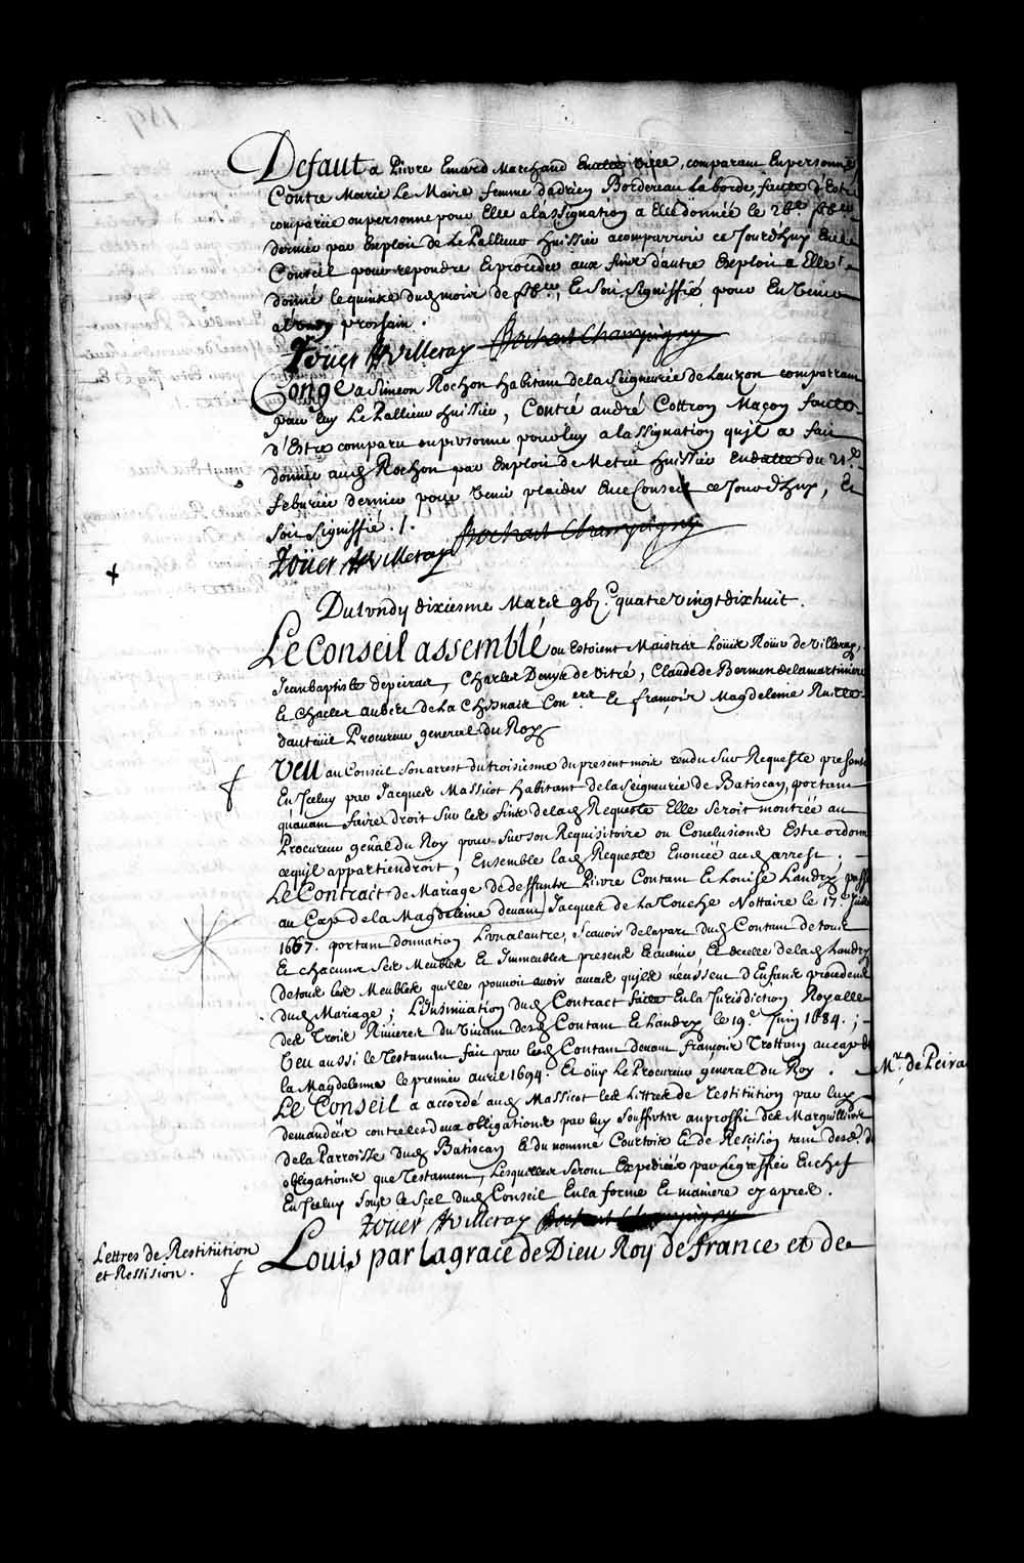 Defaut a Pierre Emard Marchand en cette ville, comparant en personne
Contre Marie Le Maire femme d'adrien Bordereau Laborde faute d'Estre
comparüe ou personne pour Elle a l'assignation a Elle donnée le 26e
dernier par Exploit de Le Pallieur huissier a comparroir ce Jourd'huy en ce
Conseil pour repondre et proceder aux fins d'autre Exploit a Elle
donné le quinze dud mois de et soit signiffié pour En venir
a Lundy prochain.
Roüer de Villeray Bochart Champigny
Congé a Simeon Rochon habitant de la Seigneurie de Lauzon comparant
pour luy Le Pallieur huissier, Contre andré Cottron Maçon faute
d'Estre comparu ou personne pour luy a l'assignation qu'il a fait
donner aud Rochon par Exploit de Metru huissier en datte du 21e
feburier dernier pour venir plaider En ce Conseil ce Jourd'huy, Et
soit signiffié ./.
Roüer de Villeray Bochart Champigny
Du Lundy dixiesme Mars gbjc quatre vingt dixhuit.
Le Conseil assemblé ou Estoient Maistres Loüis Roüer de Villeray,
Jean baptiste depeiras, Charles Denys de Vitré, Claude de Bermen de la martiniere
Et Charles aubert de la Chesnaie Coners Et françois Magdeleine Ruette
dauteüil Procureur general du Roy
Veu au Conseil son arrest du troisiesme du present mois rendu sur Requeste presentée
En Iceluy par Jacques Massicot habitant de la Seigneurie de Batiscan, portant
qu'avant faire droit sur les fins de lad Requeste Elle seroit montrée au
Procureur genal du Roy pour sur son Requisitoire ou Conclusions Estre ordonné
ce qu'il appartiendroit, Ensemble lad Requeste Enoncée aud arrest ;
Le Contract de Mariage de deffunts Pierre Contant Et Louise Landry passé
au Cap de la Magdeleine devant Jacques de La Touche Nottaire le 17e Juillet
1667. portant donnation L'un a l'autre, scavoir de la part dud Contant de tous
Et chacuns ses Meubles Et Immeubles presens Et avenir, Et de celle de lad Landry
de tous les Meubles qu'elle pouvoit avoir au cas qu'ils n'eussent d'Enfans procedens
dud Mariage ; L'Insinüation dud Contract faite En la Jurisdiction Royalle
des Trois Rivieres du vivant desd Contant Et Landry le 19e Juin 1684. ;
Veu aussi le Testament fait par led Contant devant françois Trottain au cap de
la Magdelenne le premier avril 1694. Et oüy Le Procureur general du Roy.
Mr. de Peiras
Le Conseil a accordé aud Massicot les Lettres de restitütion par luy
demandées contre les deux obligations par luy souffertes au proffit des Marguilliers
de la Parroisse dud Batiscan Et du nommé Courtois Et de Rescision tant desd.
obligations que Testament, Lesquelles seront Expediées par Le greffier En chef
En Iceluy sous le Scel dud Conseil En la forme Et maniere cy apres.
Roüer de Villeray Bochart Champigny
Lettres de Restitütion
et Ressision.
Louis par la grace de Dieu Roy de france et de